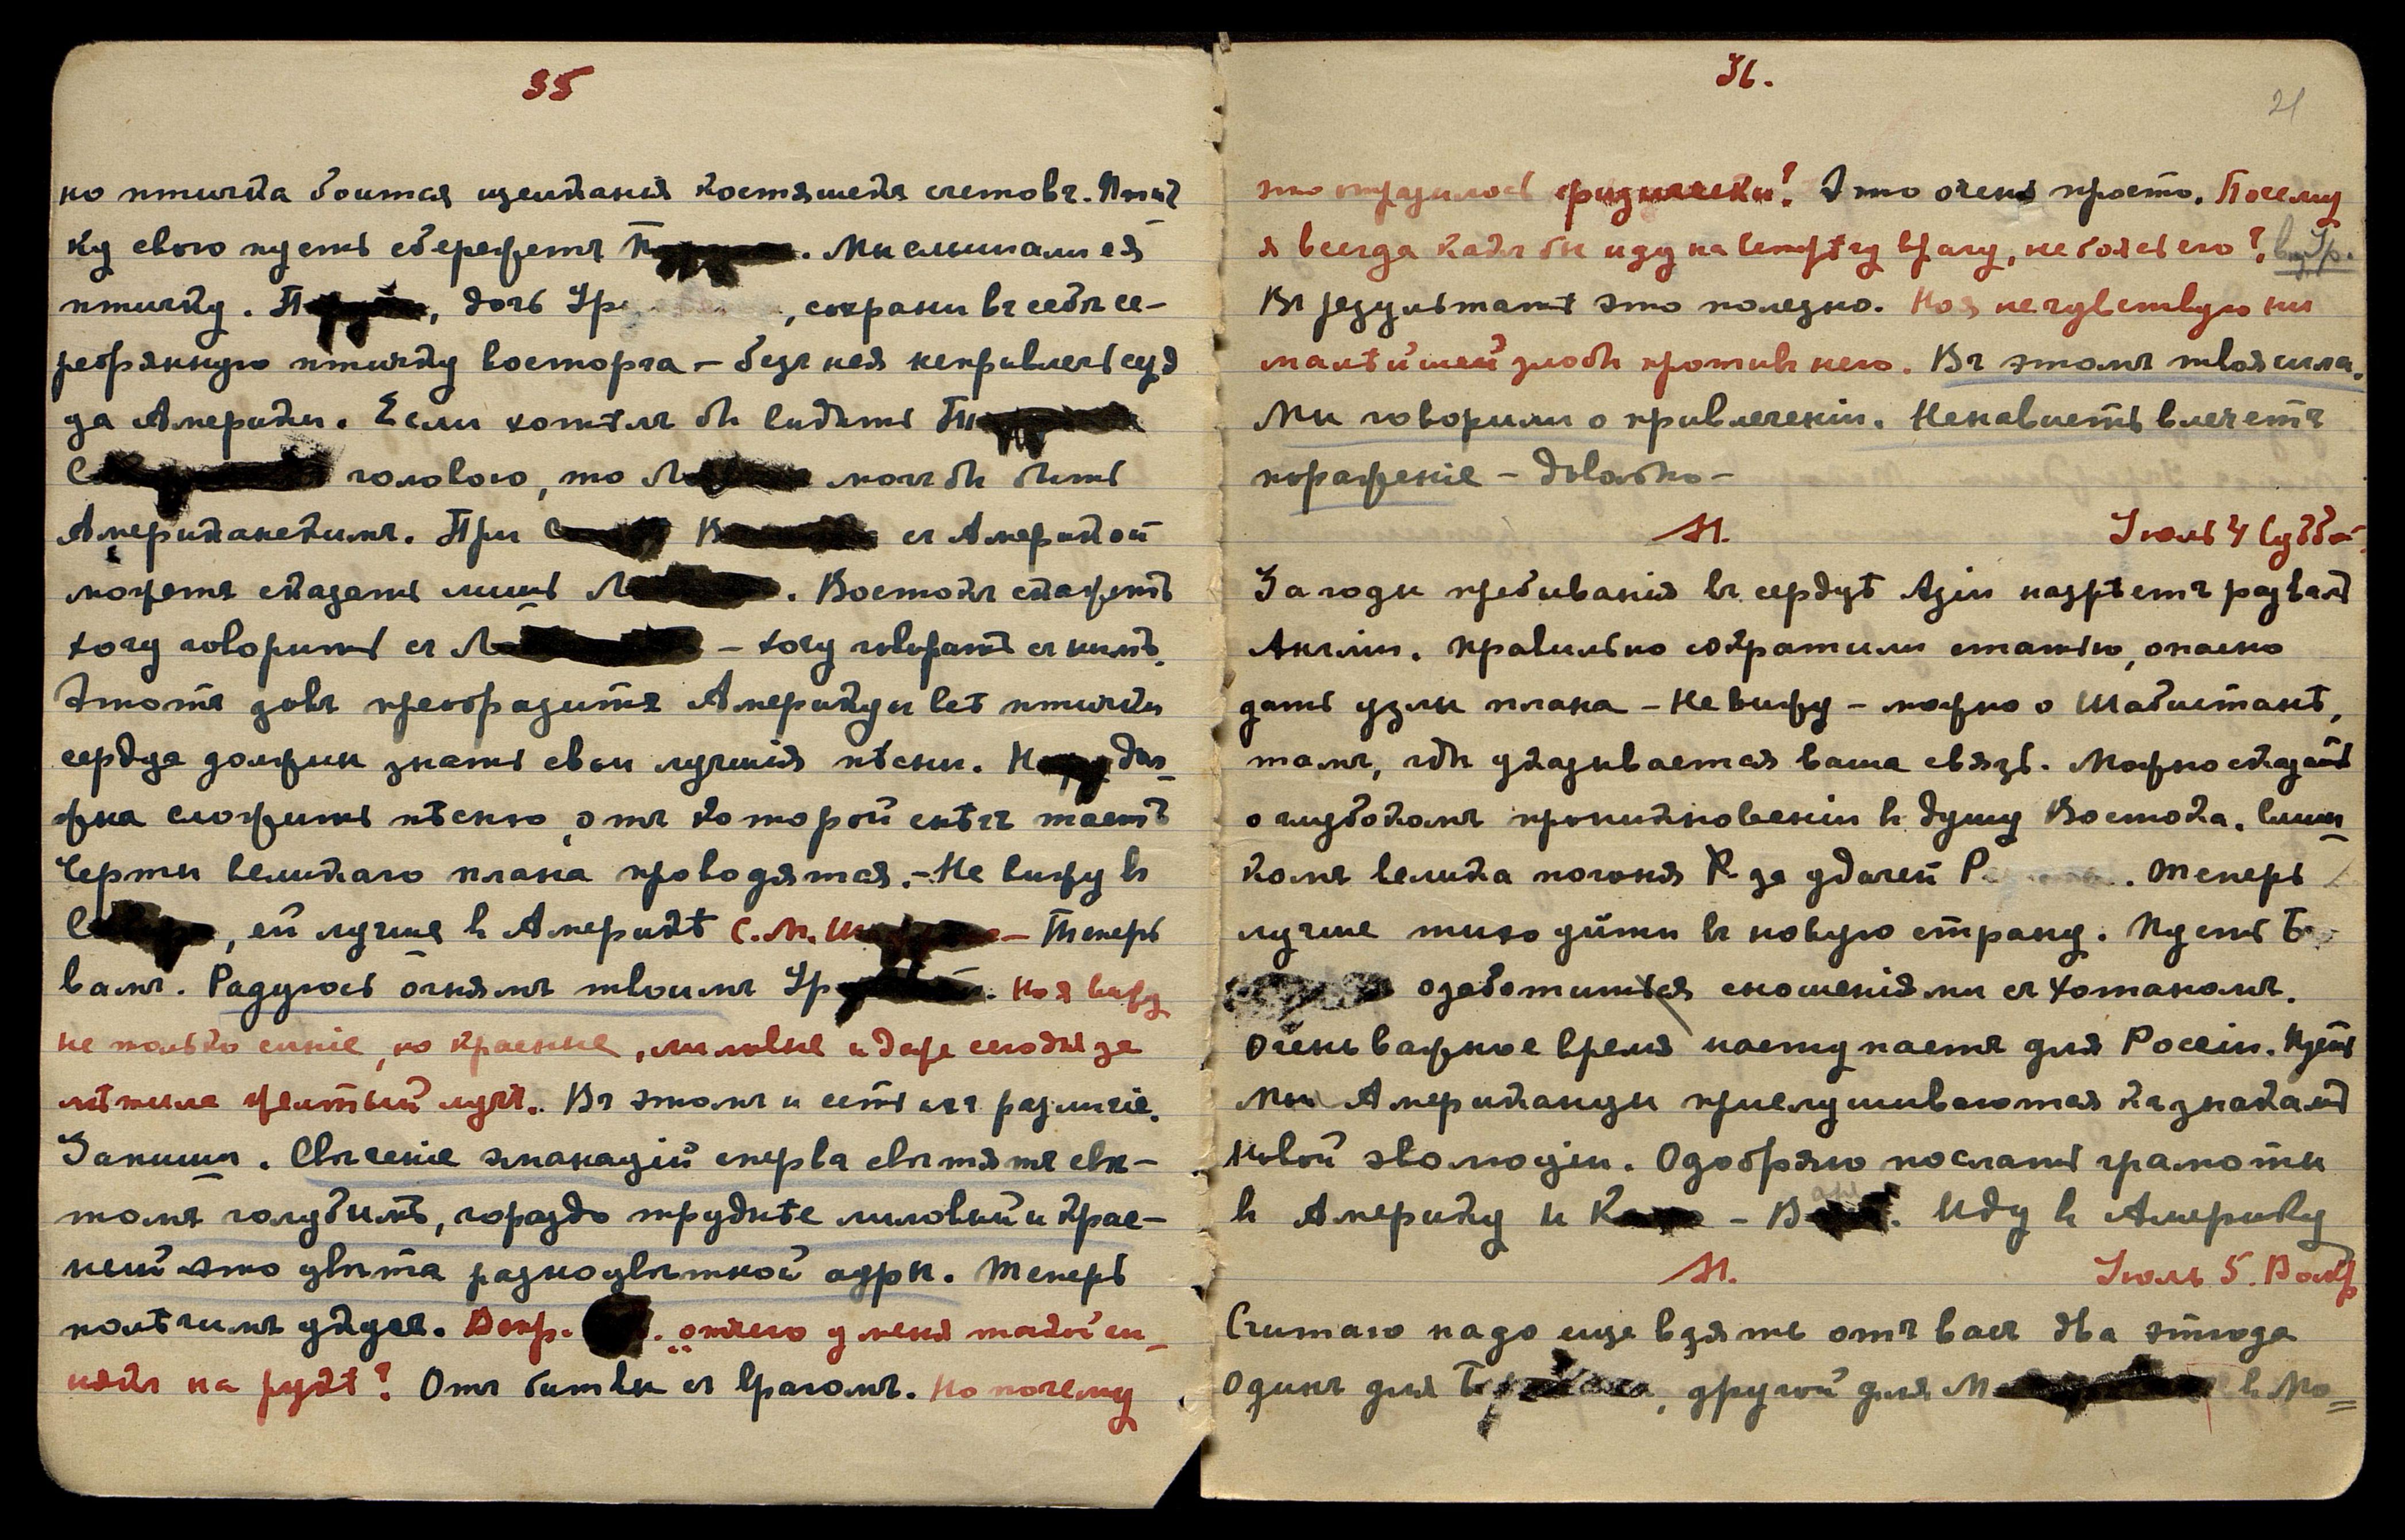 35
но птичка боится щелканья костяшекъ счетовъ. Птич
ку свою пусть сбережетъ П. Мы слышали ея
птичку. П, дочь Ур, сохрани въ себѣ се-
ребрянную птичку восторга – безъ нея не привлечь серд
ца Америки. Если хотѣлъ бы видѣть
С головою, то Л могъ бы быть
Американскимъ. При С В съ Америкой
можетъ сказать лишь Л. Востокъ скажетъ
хочу говорить съ Л – хочу говорить съ нимъ.
Этотъ зовъ преобразитъ Америку и всѣ птички
сердца должны знать свои лучшія пѣсни. дол-
жна сложить пѣсню, отъ которой снѣгъ таетъ
Черты великаго плана проводятся. – Не вижу въ
С, ей лучше в Америкѣ С.М.Ш – Теперь
вамъ. Радуюсь огнямъ твоимъ Ур. Но я вижу
не только синіе, но красные, лиловые и даже сегодня за
мѣтила желтый лучъ. Въ этомъ и есть ихъ различіе.
Запиши. Свѣченіе эманацій сперва свѣтятъ свѣ-
томъ голубымъ, гораздо труднѣе лиловый и крас-
ный это цвѣта разноцвѣтной ауры. Теперь
полѣчимъ укусъ. Вопр. отчего у меня такой си-
някъ на рукѣ? Отъ битвы съ врагомъ. Но почему
36.
21
это отразилось физически? Это очень просто. Почему
я всегда какъ бы иду на встрѣчу врагу, не боясь его?
Въ результатѣ это полезно. Но я не чувствую ни
малѣйшей злобы противъ него. Въ этомъ твоя сила.
Мы говорили о привлеченіи. Ненависть влечетъ
пораженіе – довольно –
М. Іюль 4 Суббот.
За годы пребыванія въ сердцѣ Азіи назрѣетъ развалъ
Англіи. Правильно сократили статью, опасно
дать узлы плана – Не вижу – можно о Шабистанѣ,
тамъ, гдѣ указывается ваша связь. Можно сказать
о глубокомъ проникновеніи в душу Востока. Слиш-
комъ велика погоня R за удачей Р. Теперь
лучше тихо уйти въ новую страну. Пусть Б
озаботиться сношеніями съ Хотаномъ.
Очень важное время наступаетъ для Россіи. Пусть
мы Американцы прислушиваются къ знакамъ
новой эволюціи. Одобряю послать грамоты
в Америку и К – В. Иду в Америку
М. Іюль 5. Воскр
Считаю надо еще взять отъ васъ два этюда
Одинъ для Б, другой для М в Мо=